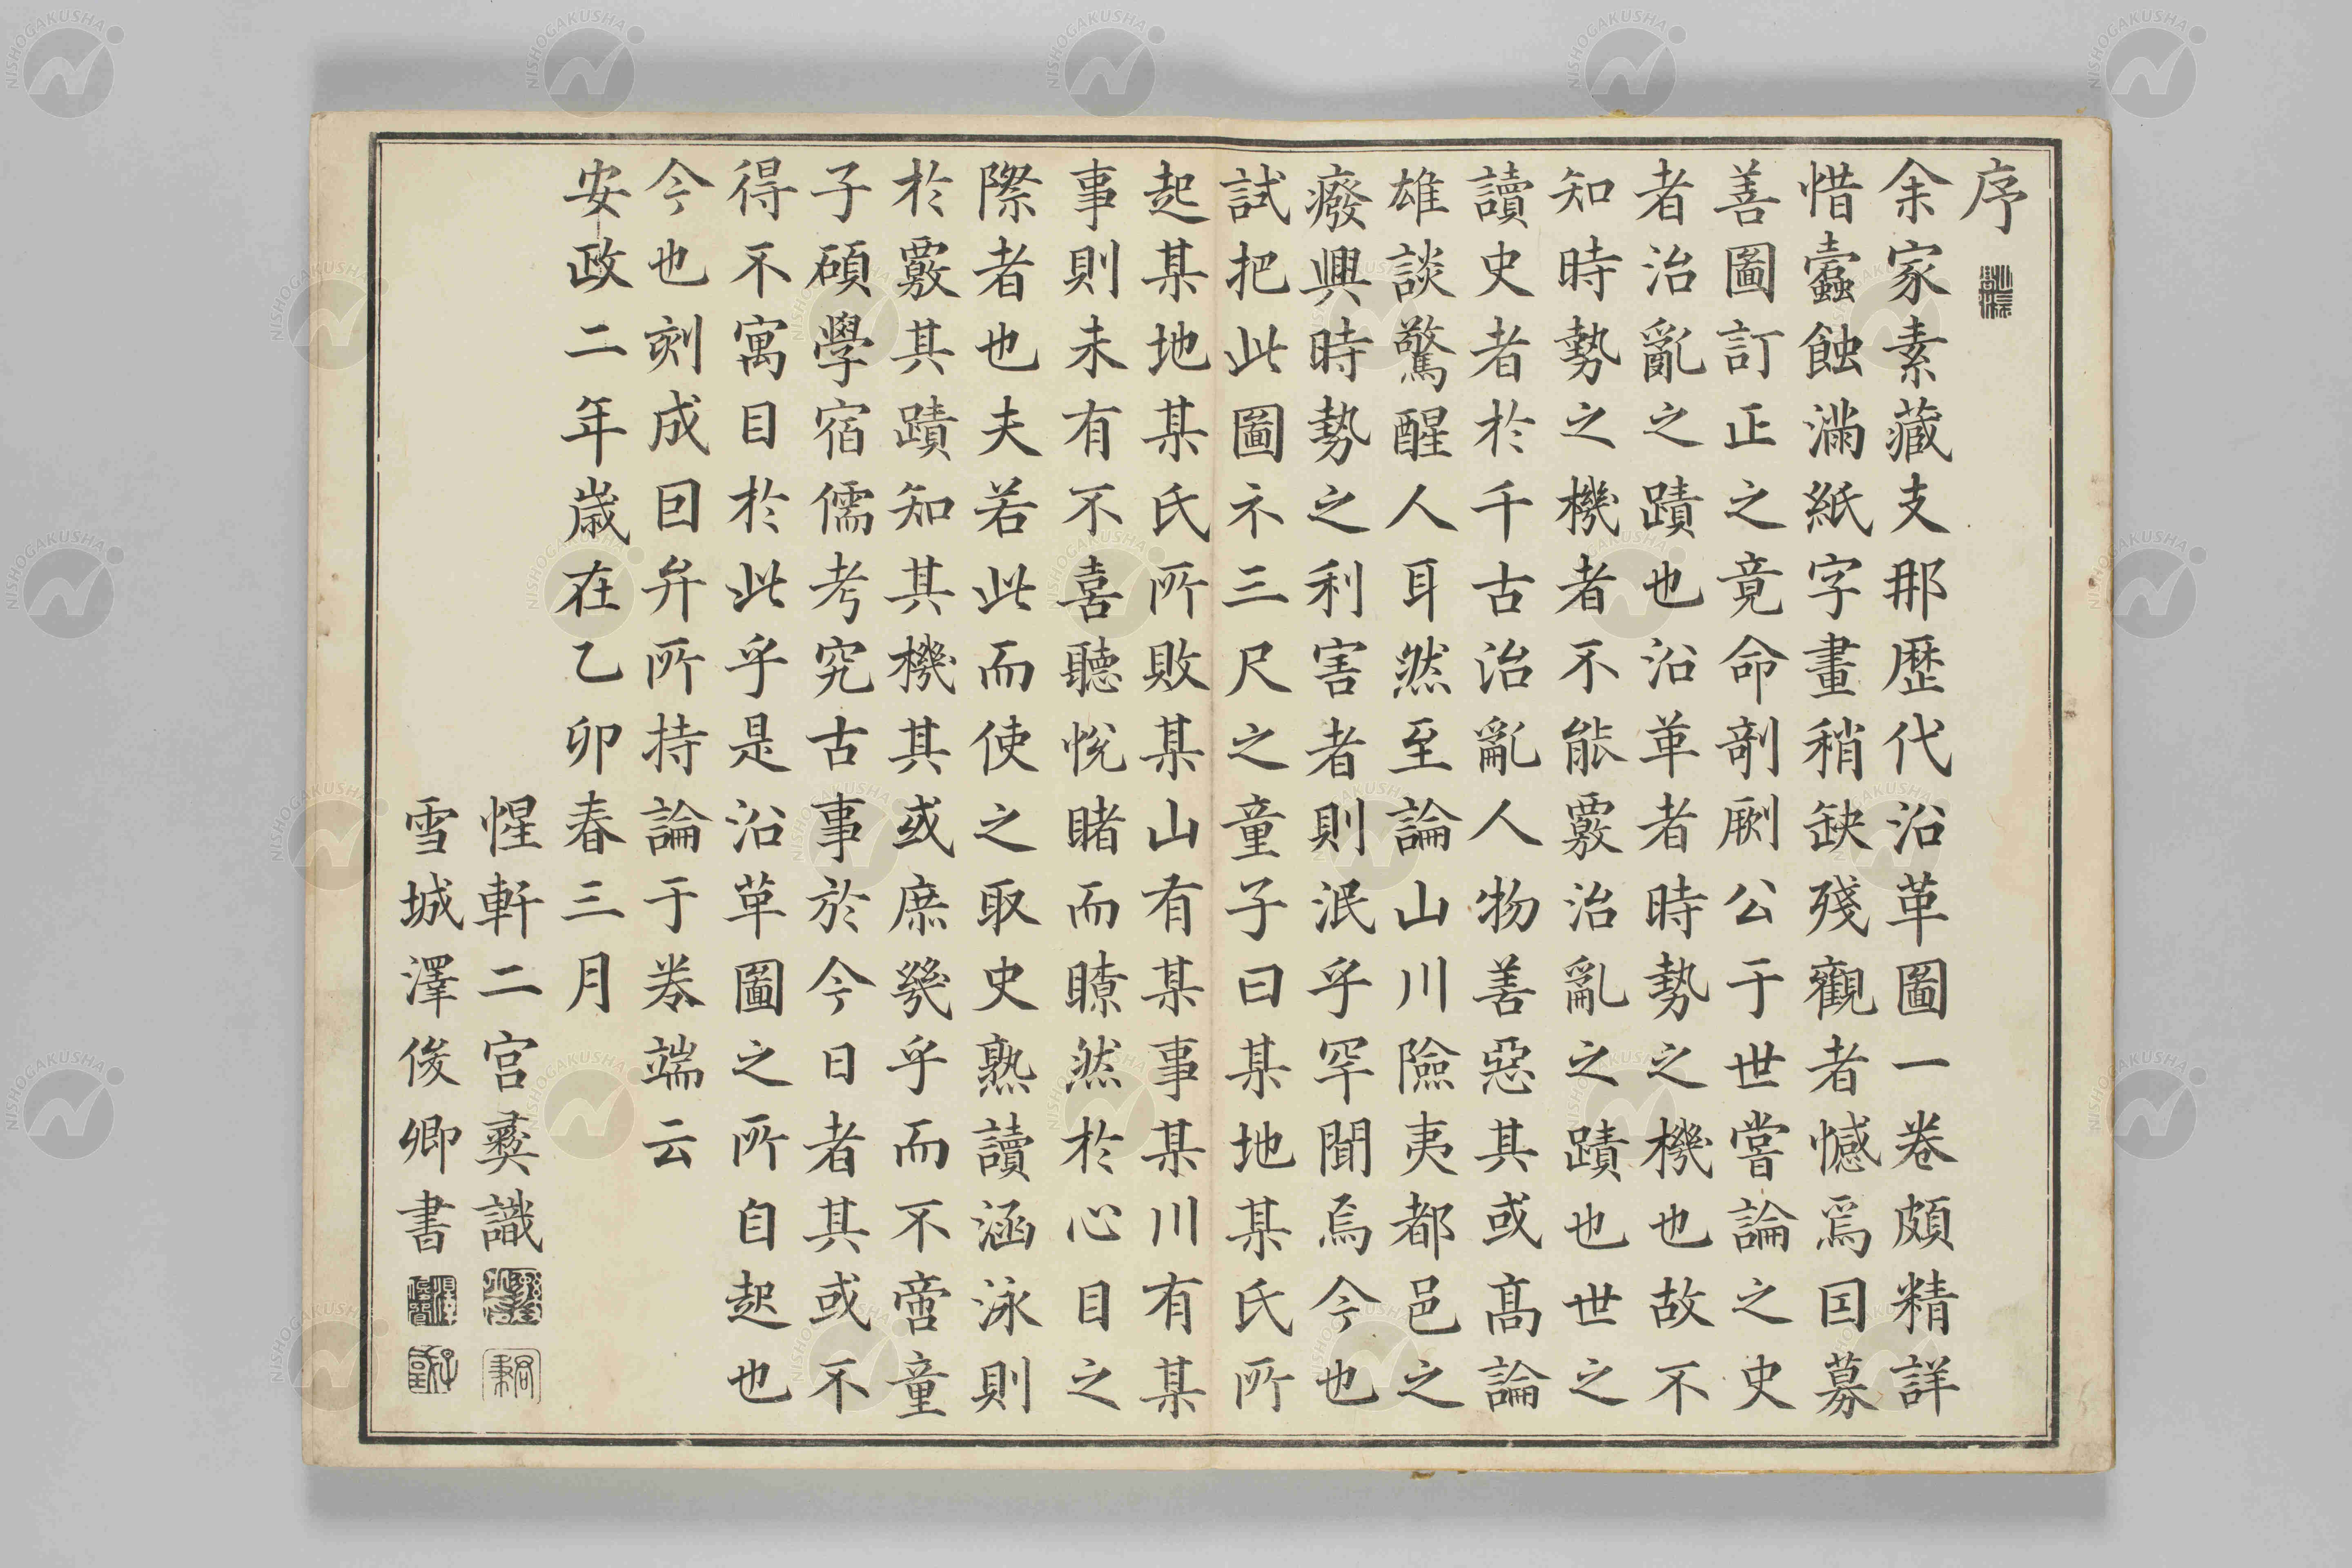 序
余家素藏支那歷代沿革圖一卷頗精詳
惜蠧蝕滿紙字畫稍缺殘觀者憾焉因募
善圖訂正之竟命剞劂公于世嘗論之史
者治亂之蹟也沿革者時勢之機也故不
知時勢之機者不能覈治亂之蹟也世之
讀史者於千古治亂人物善惡其或高論
雄談驚醒人耳然至論山川險夷都邑之
癈興時勢之利害者則泯乎罕聞焉今也
試把此圖示三尺之童子曰某地某氏所
起某地某氏所敗某山有某事某川有某
事則未有不喜聽悅睹而瞭然於心目之
際者也夫若此而使之取史熟讀涵泳則
於覈其蹟知其機其或庶幾乎而不啻童
子碩學宿儒考究古事於今日者其或不
得不寓目於此乎是沿革圖之所自起也
今也刻成因弁所持論于卷端云
安政二年歲在乙卯春三月
惺軒二宮彜識
雪城澤俊卿書
NISHOGAKUSHA